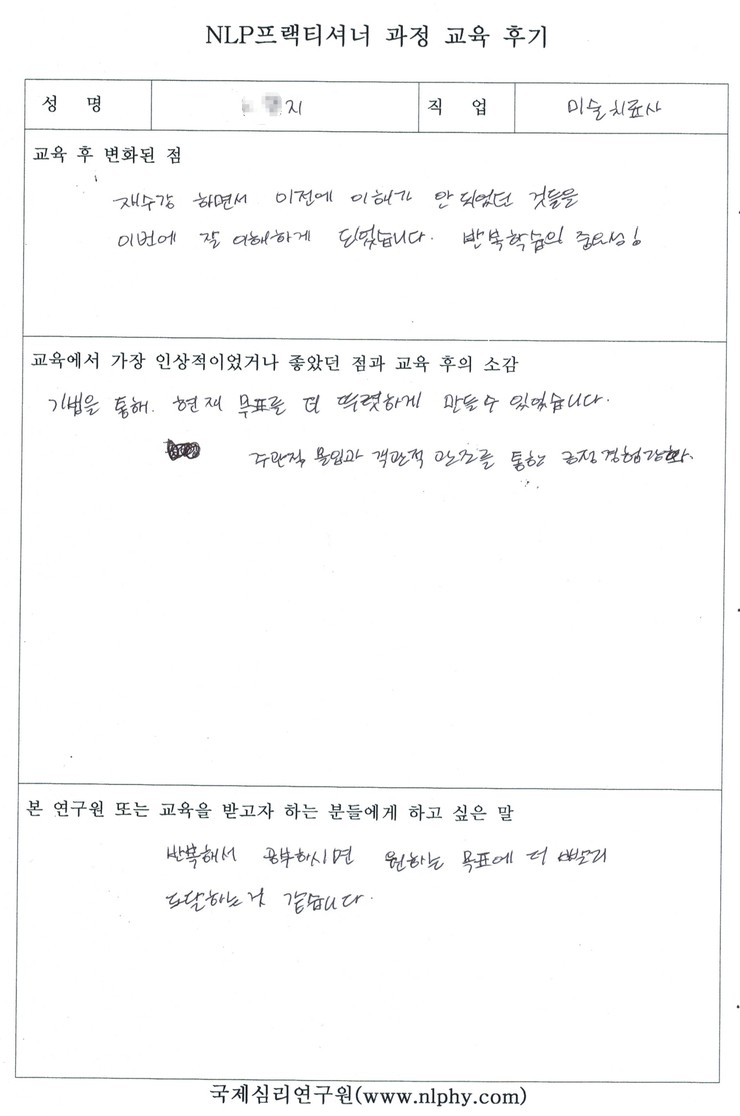 NLP프랙티셔너 과정 교육 후기
성 명 지 직 업 미술치료사
교육 후 변화된 점
재수강 하면서 이전에 이해가 안 되었던 것들을
이번에 잘 이해하게 되었습니다. 반복학습의 중요성!
교육에서 가장 인상적이었거나 좋았던 점과 교육 후의 소감
기법을 통해. 현재 목표를 더 뚜렷하게 만들 수 있었습니다.
주관적 몰입과 객관적 관조를 통한 긍정경험강화.
본 연구원 또는 교육을 받고자 하는 분들에게 하고 싶은 말
반복해서 공부하시면 원하는 목표에 더 빨리
도달하는 것 같습니다.
국제심리연구원(www.nlphy.com)